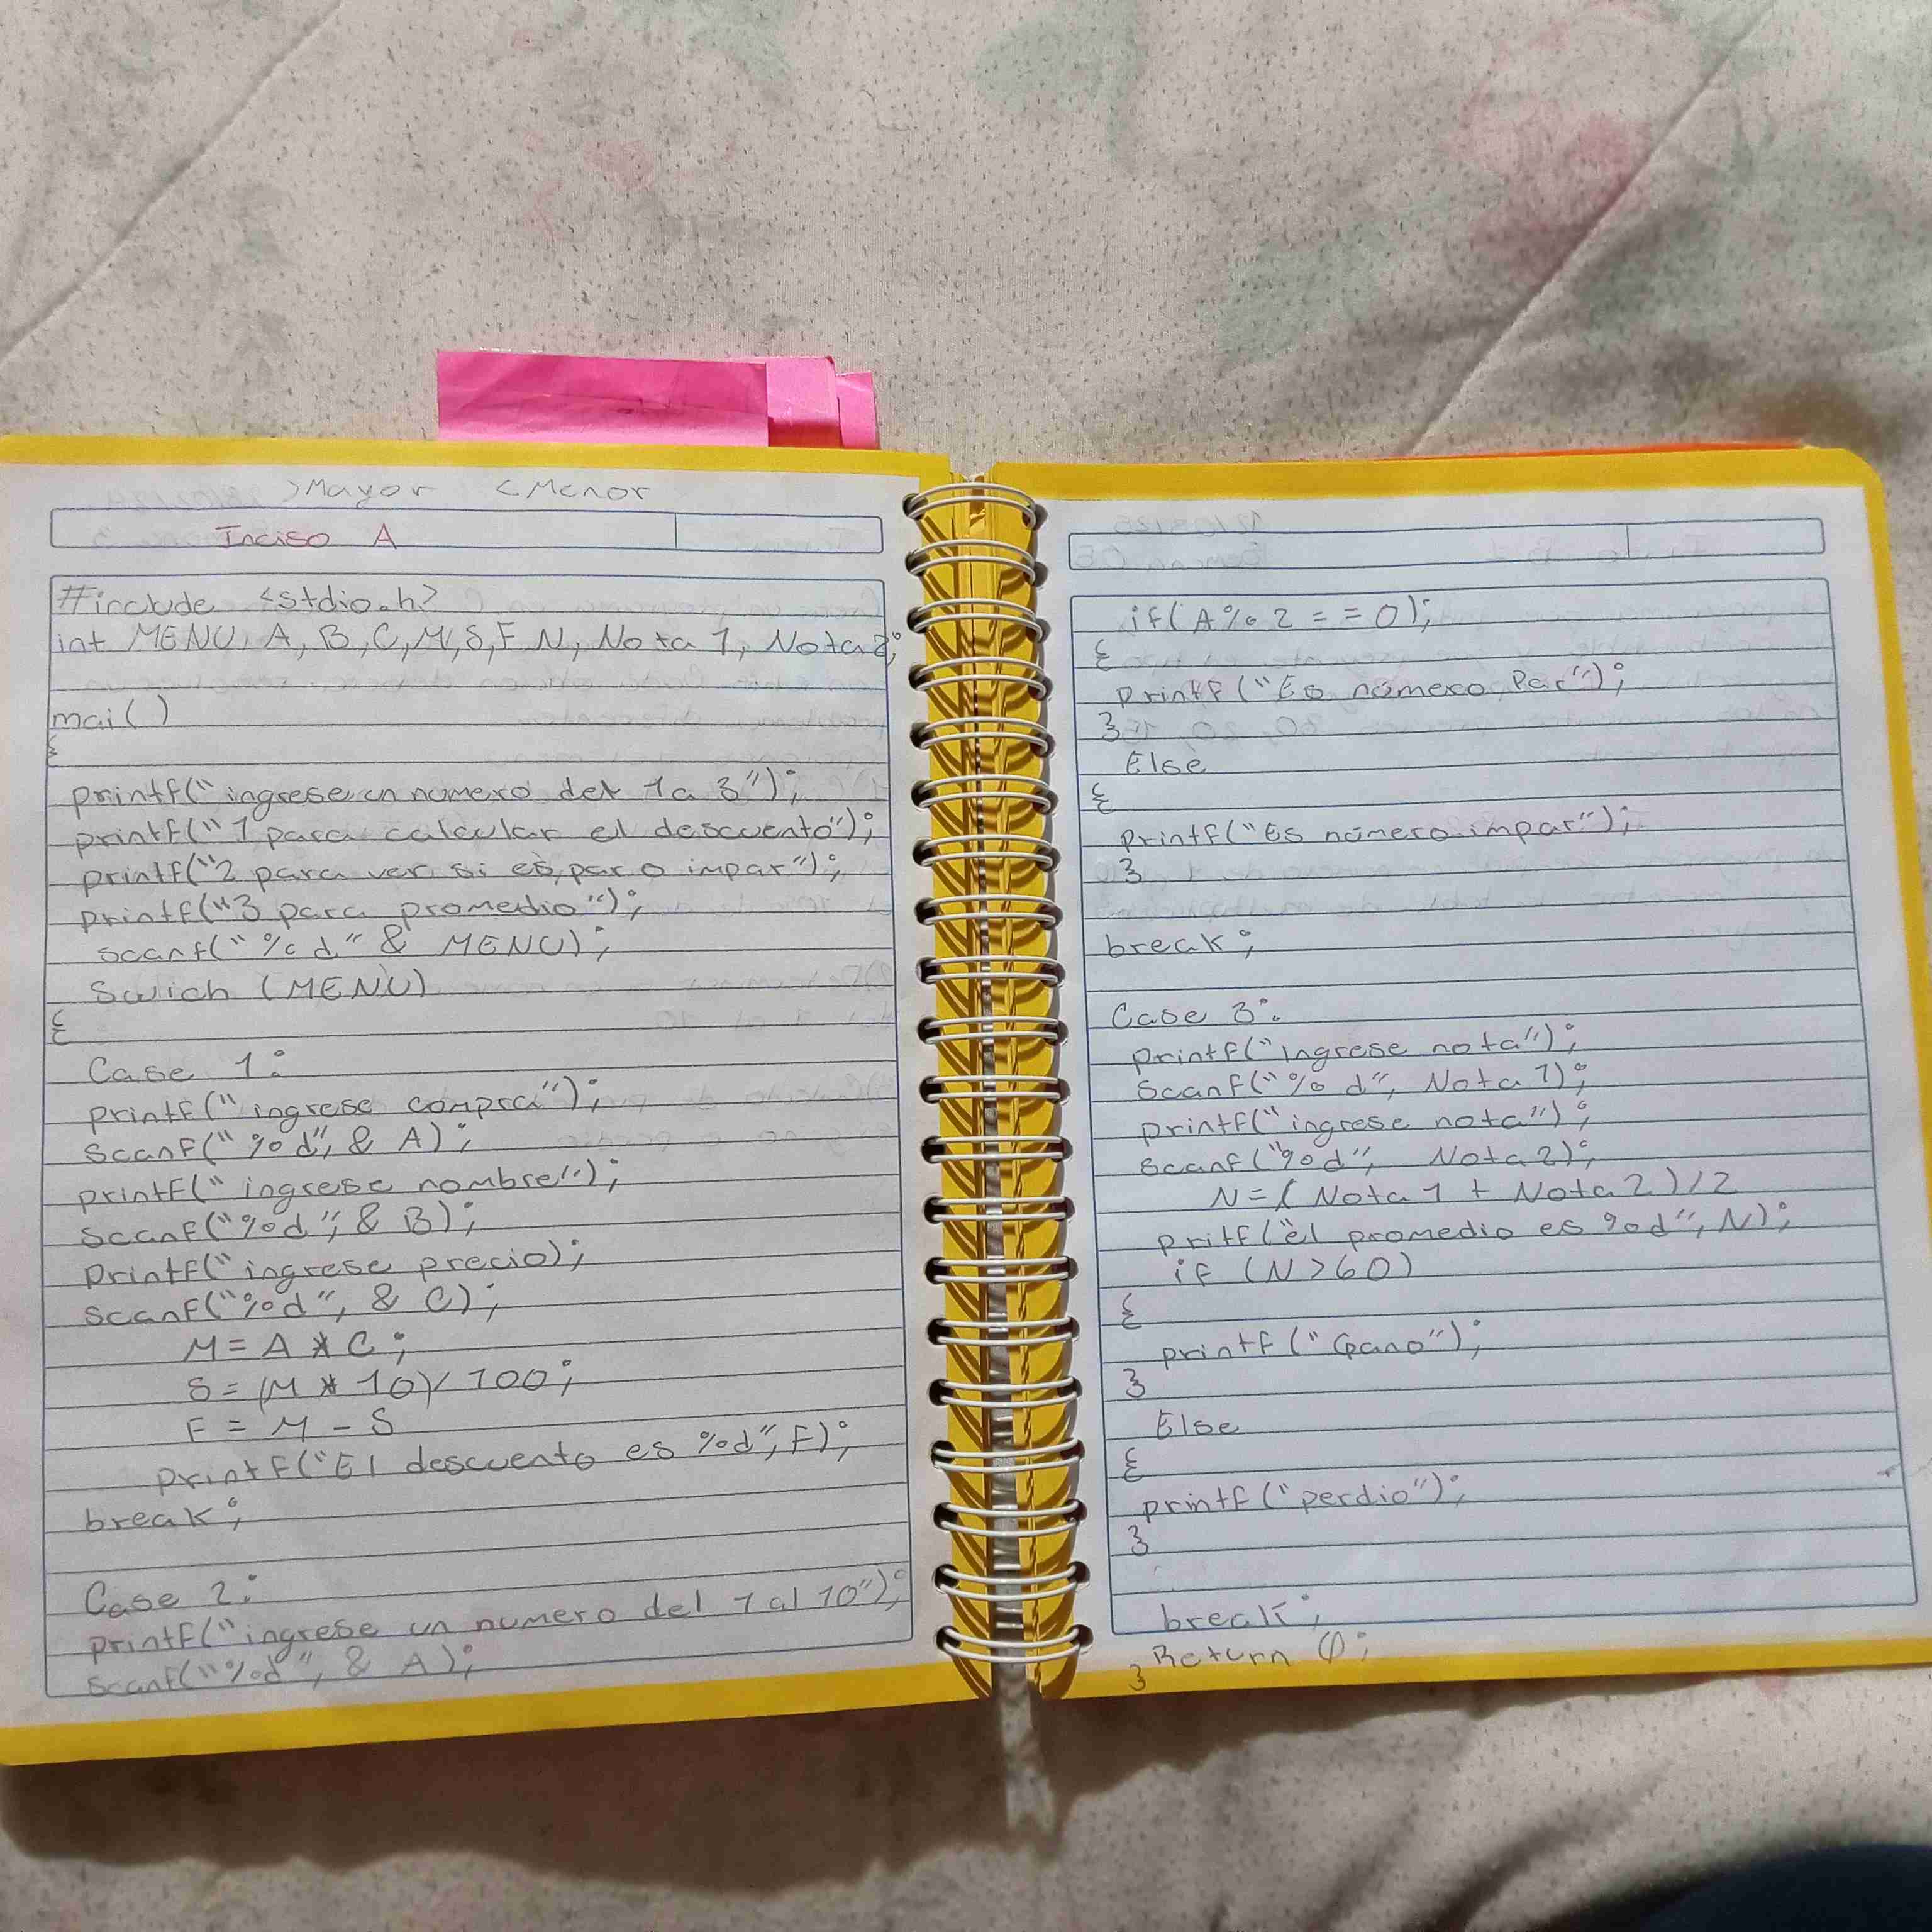 >Mayor <Menor
Inciso A
#include <stdio.h>
int MENU, A, B, C, M, S, F N, Nota 1, Nota 2;
mai()
{
printf("ingrese un numero del 1 a 3");
printf("1 para calcular el descuento");
printf("2 para ver si es par o impar");
printf("3 para promedio");
scanf("%d" & MENU);
Swich (MENU)
{
Case 1:
printf("ingrese compra");
scanf("%d", & A);
printf("ingrese nombre");
scanf("%d", & B);
printf("ingrese precio);
scanf("%d", & C);
M = A * C;
S = (M * 10)/100;
F = M - S
printf("El descuento es %d", F);
break;
Case 2:
printf("ingrese un numero del 1 al 10");
scanf("%d", & A);
if(A % 2 = = 0);
{
printf("Es número Par");
}
Else
{
printf("Es número impar");
}
break;
Case 3:
printf("ingrese nota");
scanf("%d", Nota 1);
printf("ingrese nota");
scanf("%d", Nota 2);
N = (Nota 1 + Nota 2)/2
pritf("el promedio es %d", N);
if (N > 60)
{
printf("Gano");
}
Else
{
printf("perdio");
}
break;
Return 0;
}